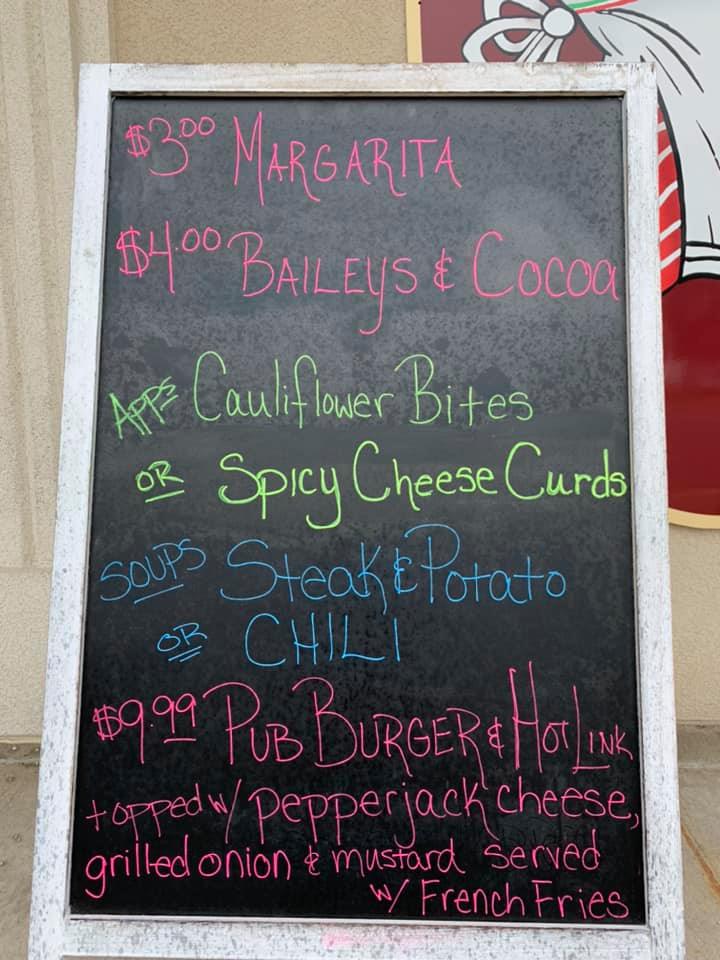 $3.00 MARGARITA
$4.00 BAILEYS & COCOA
APPS Cauliflower Bites
OR Spicy Cheese Curds
SOUPS Steak & Potato
OR CHILI
$9.99 PUB BURGER & HOT LINK
topped w/ pepperjack cheese,
grilled onion & mustard served
w/ French Fries